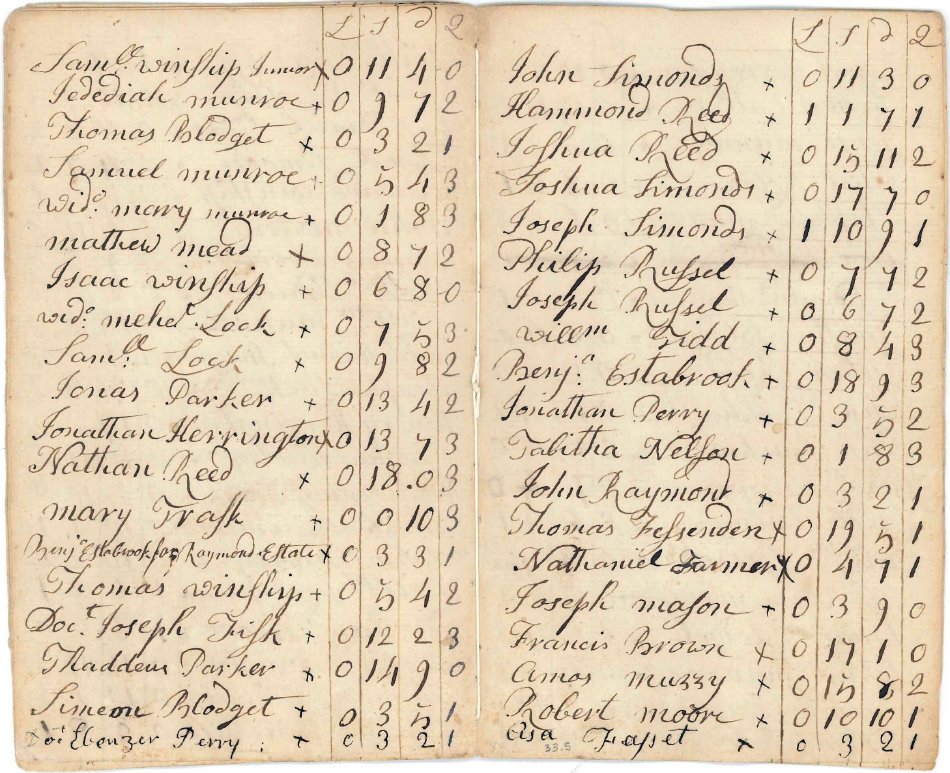 L S d Q
Samll winship Junior x 0 11 4 0
Jedediah munroe + 0 9 7 2
Thomas Blodget x 0 3 2 1
Samuel munroe + 0 5 4 3
wido mary munroe + 0 1 8 3
mathew mead x 0 8 7 2
Isaac winship + 0 6 8 0
wido mehet Lock + 0 7 5 3
Samll Lock x 0 9 8 2
Jonas Parker + 0 13 4 2
Jonathan Herrington x 0 13 7 3
Nathan Reed x 0 18 . 0 3
mary Trask + 0 0 10 3
Benja Estabrook for Raymond Estate x 0 3 3 1
Thomas winship + 0 5 4 2
Doct Joseph Fisk + 0 12 2 3
Thaddeus Parker x 0 14 9 0
Simeon Blodget + 0 3 5 1
Doc Ebenzer Perry + 0 3 2 1
L S d Q
John Simonds x 0 11 3 0
Hammond Reed x 1 1 7 1
Joshua Reed x 0 15 11 2
Joshua Simonds + 0 17 7 0
Joseph Simonds x 1 10 9 1
Philip Russel x 0 7 7 2
Joseph Russel + 0 6 7 2
willm Tidd x 0 8 4 3
Benja Estabrook + 0 18 9 3
Jonathan Perry + 0 3 5 2
Tabitha Nelson + 0 1 8 3
John Raymond x 0 3 2 1
Thomas Fessenden x 0 19 5 1
Nathaniel Farmer x 0 4 7 1
Joseph mason + 0 3 9 0
Francis Brown x 0 17 1 0
Amos muzzy x 0 15 8 2
Robert moore x 0 10 10 1
Asa Fasset x 0 3 2 1
33.5